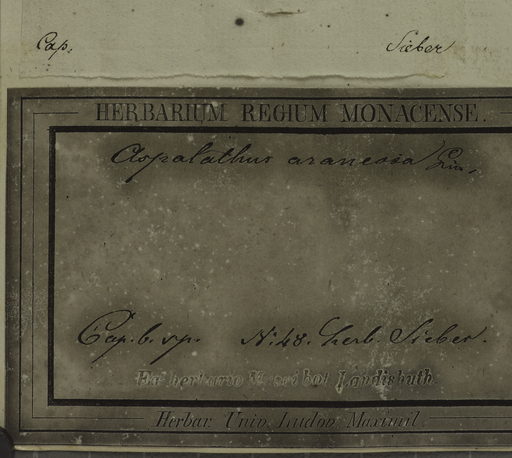 Cap. Sieber
HERBARIUM REGIUM MONACENSE.
Aspalathus araneosa Lin.
Cap. b. sp. N. 48. herb. Sieber.
Ex herbario Musei bot. Landishuth.
Herbar. Univ. Ludov. Maximil.